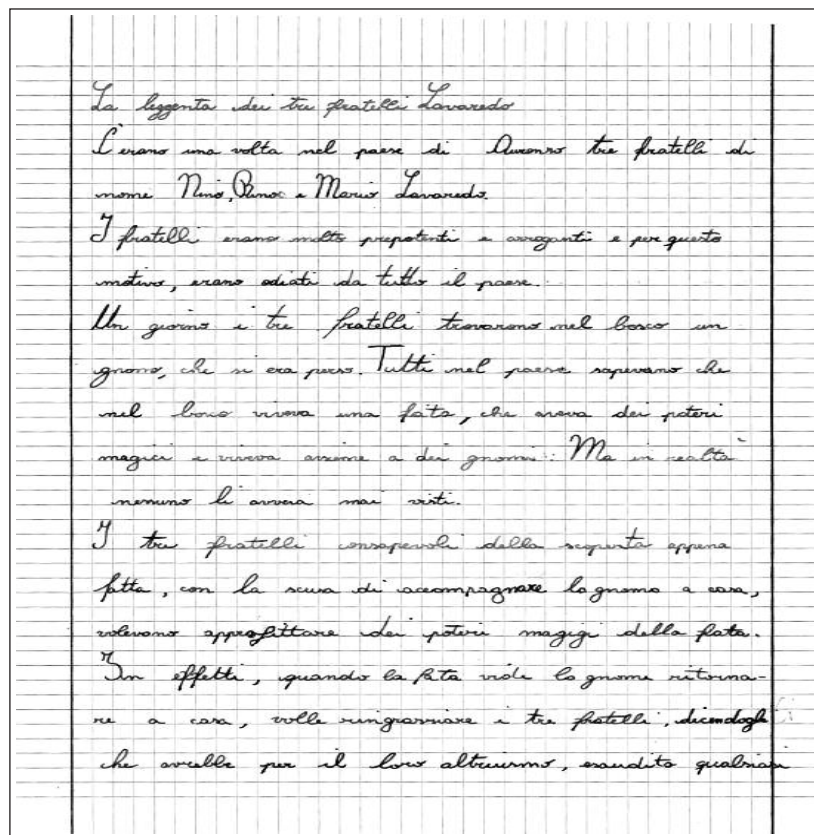 La leggenta dei tre fratelli Lavaredo
C'erano una volta nel paese di Auronzo tre fratelli di
nome Nino, Pino e Mario Lavaredo.
I fratelli erano molto prepotenti e arroganti e per questo
motivo, erano odiati da tutto il paese.
Un giorno i tre fratelli trovarono nel bosco un
gnomo, che si era perso. Tutti nel paese sapevano che
nel bosco viveva una fata, che aveva dei poteri
magici e viveva assieme a dei gnomi. Ma in realtà
nessuno li avveva mai visti.
I tre fratelli consapevoli della scoperta appena
fatta, con la scusa di accompagnare lo gnomo a casa,
volevano approfittare dei poteri magigi della fata.
In effetti, quando la fata vide lo gnomo ritorna-
re a casa, volle ringrazziare i tre fratelli, dicendogli
che avrebbe per il loro altruismo, esaudito qualsiasi